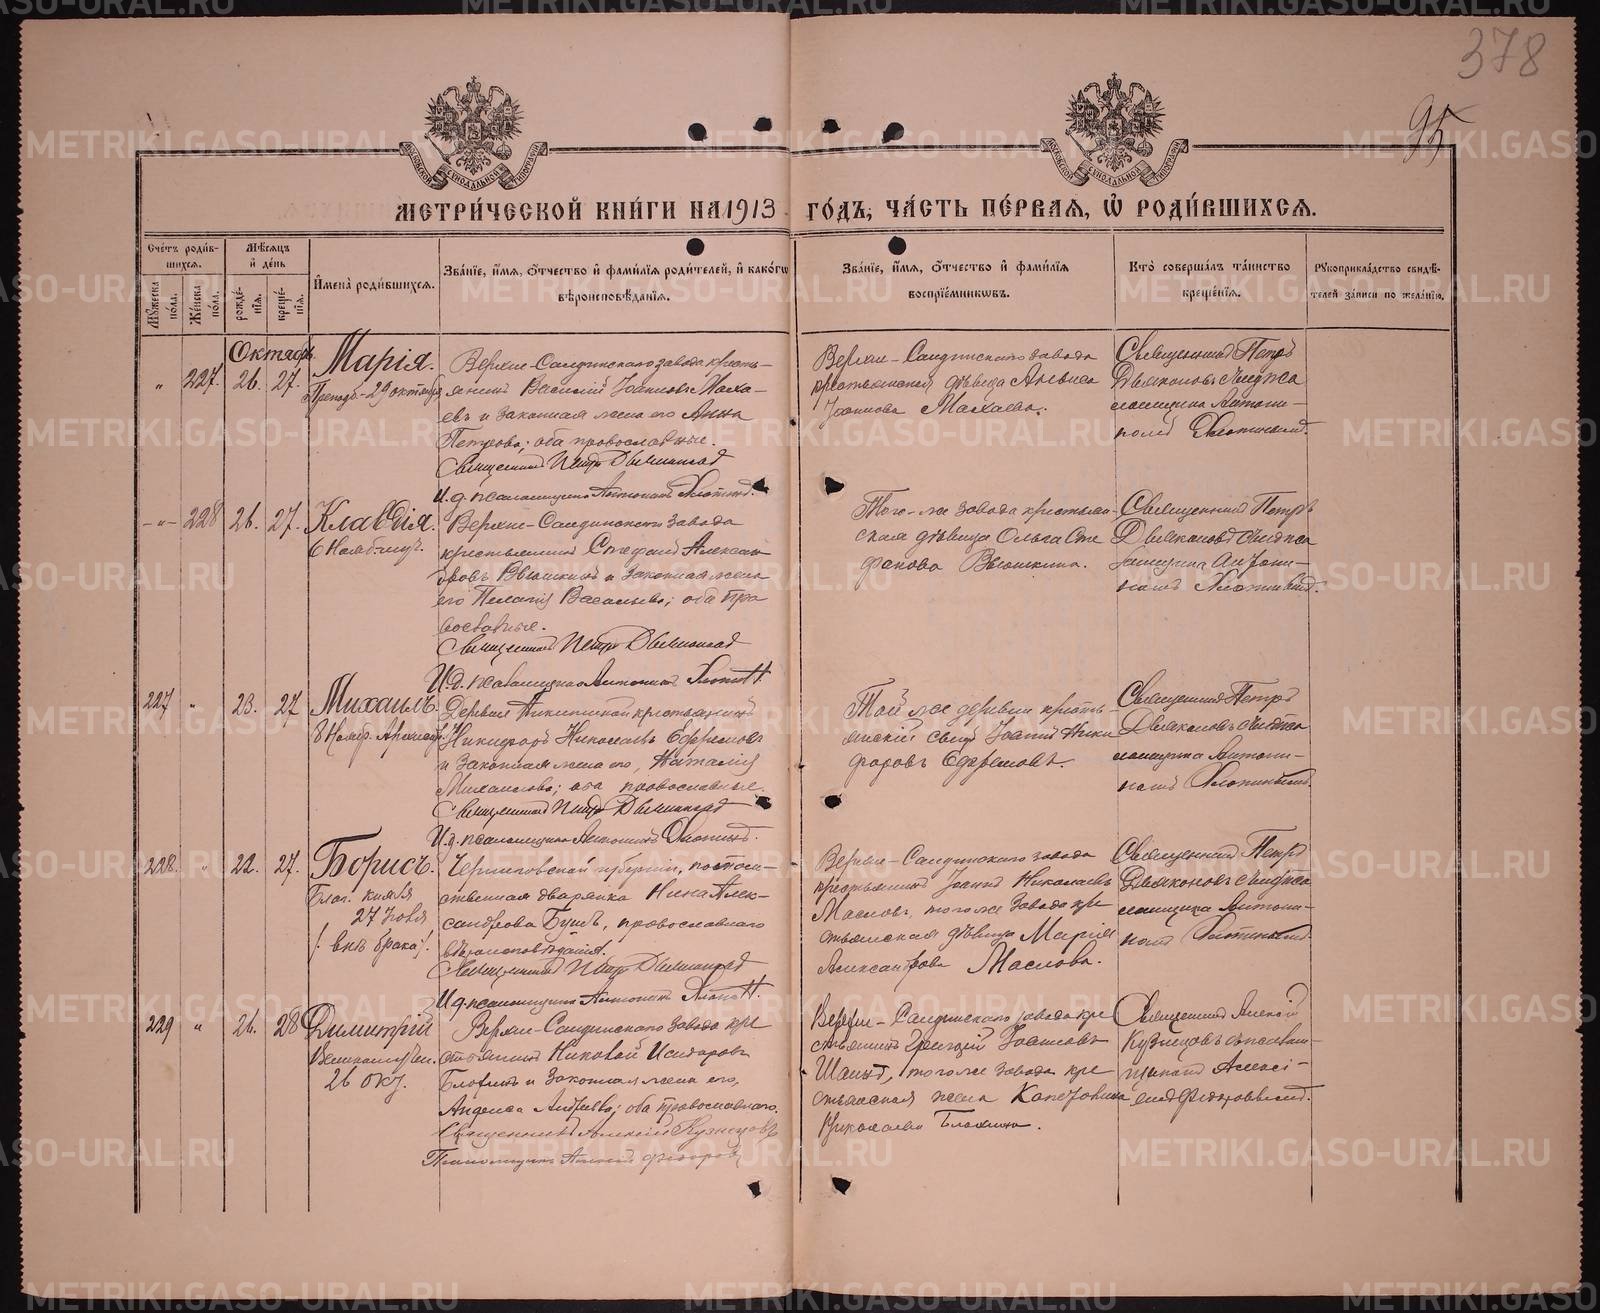 378
95
МЕТРИ́ЧЕСКОЙ КНИ́ГИ НА 1913 ГО́ДЪ, ЧА́СТЬ ПЕ́РВАЯ, Ѡ РОДИ́ВШИХСЯ.
Сче́тъ роди́вшихся.
Му́жеска по́ла.
Же́нска по́ла.
Мѣ́сяцъ и де́нь
рожде́нія.
креще́нія.
Имена̀ роди́вшихся.
Зва́ніе, и́мя, о́тчество и фами́лія роди́телей, и како́гѡ
вѣроисповѣ́данія.
Зва́ніе, и́мя, о́тчество и фами́лія
воспріе́мникѡвъ.
Кто̀ соверша́лъ та́инство
креще́нія.
Рукоприкла́дство свидѣ́-
телей за́писи по жела́нію.
Октябрь
" 227. 26. 27.
Марія.
Препод. - 29 октября
Верхне-Салдинскаго завода кресть-
янинъ Василій Іоанновъ Маха-
евъ и законная жена его Анна
Петрова; оба православные.
Священникъ Петръ Дьяконовъ
И.д. псаломщика Антонинъ
Верхне-Салдинскаго завода
крестьянская дѣвица Анѳиса
Іоаннова Махаева.
Священникъ Петръ
Дьяконовъ съ и.д. пса
ломщика Антони-
номъ
-"- 228 26. 27.
Клавдія.
6 Нояб. муч.
Верхне-Салдинскаго завода
крестьянинъ Стефанъ Алексан
дровъ Вьюшкинъ и законная жена
его Пелагія Васильева; оба пра
вославные.
Священникъ Петръ Дьяконовъ
И.д. псаломщика Антонинъ
Того-же завода крестьян-
ская дѣвица Ольга Сте
фанова Вьюшкина.
Священникъ Петръ
Дьяконовъ съ и.д. пса
ломщика Антони-
номъ
227 " 23. 27
Михаилъ.
8 Нояб.
Деревни Никитиной крестьянинъ
Никифоръ Николаевъ Ефремовъ
и законная жена его, Наталія
Михаилова; оба православные.
Священникъ Петръ Дьяконовъ
И.д. псаломщика Антонинъ
Той же деревни кресть-
янскій сынъ Іоаннъ Ники
форовъ Ефремовъ.
Священникъ Петръ
Дьяконовъ съ и.д. пса
ломщика Антони-
номъ
228. " 22. 27.
Борисъ.
Благ. князя
27 Іюля
/: внѣ брака :/.
Черниговской губерніи, потом-
ственная дворянка Нина Алек-
сандрова Бушъ, православнаго
вѣроисповѣданія.
Священникъ Петръ Дьяконовъ
И.д. псаломщика Антонинъ
Верхне-Салдинскаго завода
крестьянинъ Іоаннъ Николаевъ
Масловъ, того же завода кре
стьянская дѣвица Марія
Александрова Маслова.
Священникъ Петръ
Дьяконовъ съ и.д. пса
ломщика Антони-
номъ
229 " 26. 28
Димитрій
Великомучен.
26 окт.
Верхне-Салдинскаго завода кре
стьянинъ Николай Исидоровъ
Блохинъ и законная жена его,
Андреева; оба православнаго.
Священникъ Алексій Кузнецовъ
Псаломщикъ Алексій Федоров
Верхне-Салдинскаго завода кре
стьянинъ Григорій Іоанновъ
того же завода кре
стьянская жена
Николаева Блохина.
Священникъ Алексій
Кузнецовъ съ псалом-
щикомъ Алексі-
емъ Федоровымъ.